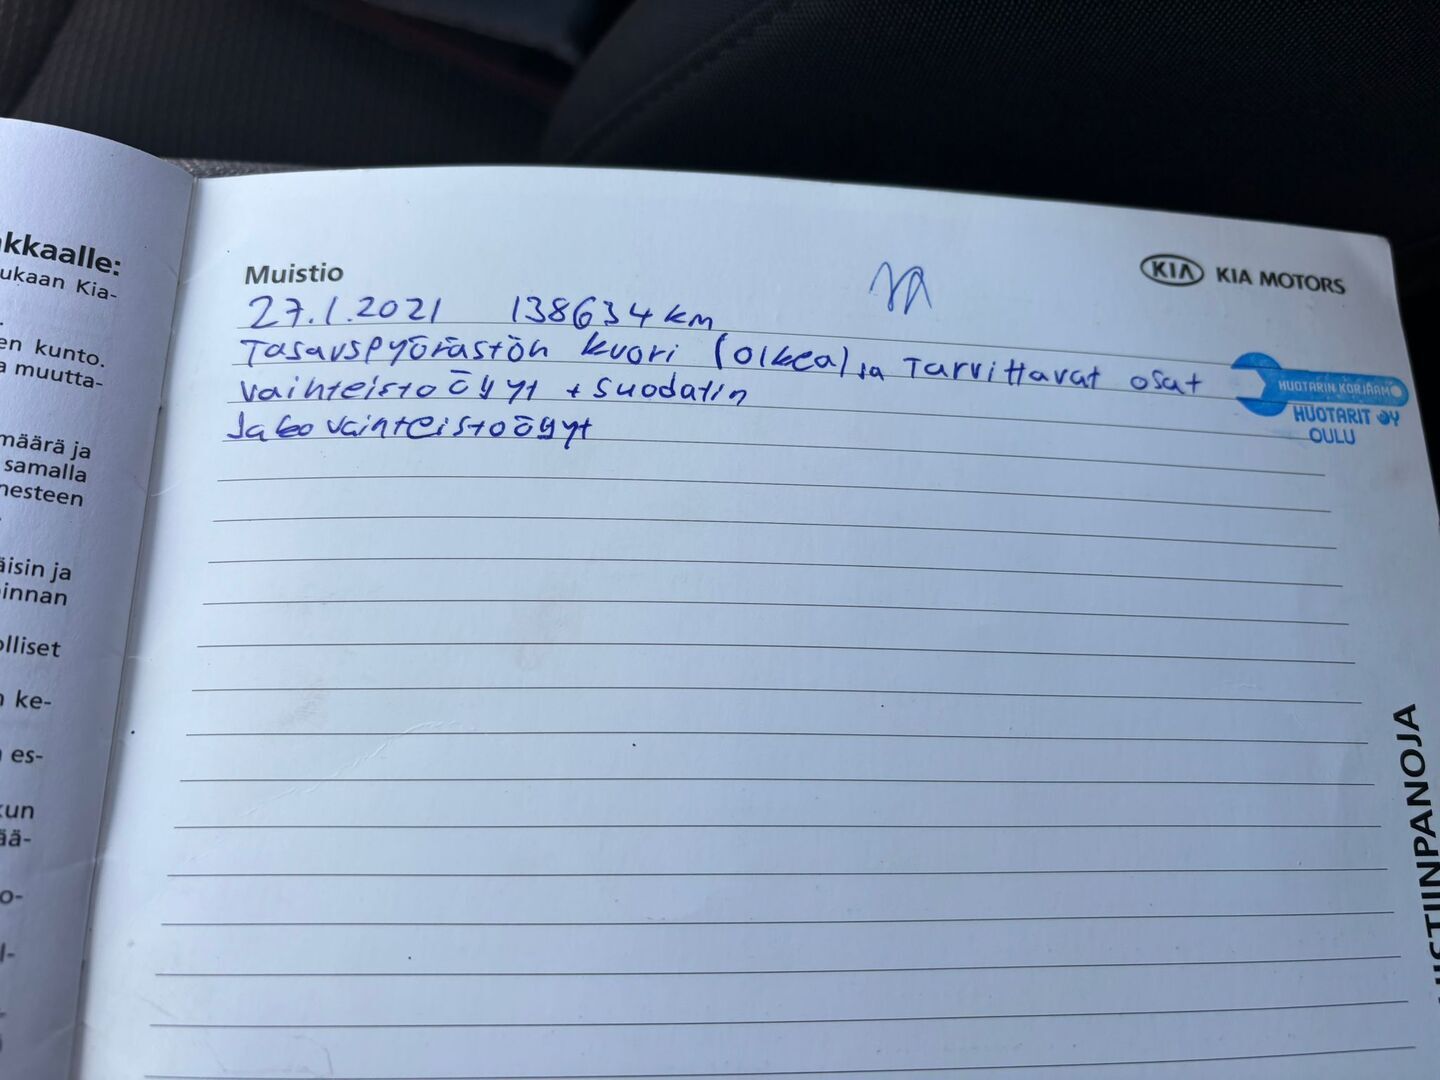 akkaalle:
ukaan Kia-
en kunto.
a muutta-
määrä ja
samalla
nesteen
äisin ja
innan
olliset
n ke-
n es-
kun
ää-
o-
l-
Muistio
KIA KIA MOTORS
27.1.2021 138634 km
Tasauspyörästön kuori (oikea) ja Tarvittavat osat
vaihteistoöljyt + suodatin
Jakovaihteistoöljyt
HUOTARIN KORJAAMO
HUOTARIT OY
OULU
STIINPANOJA